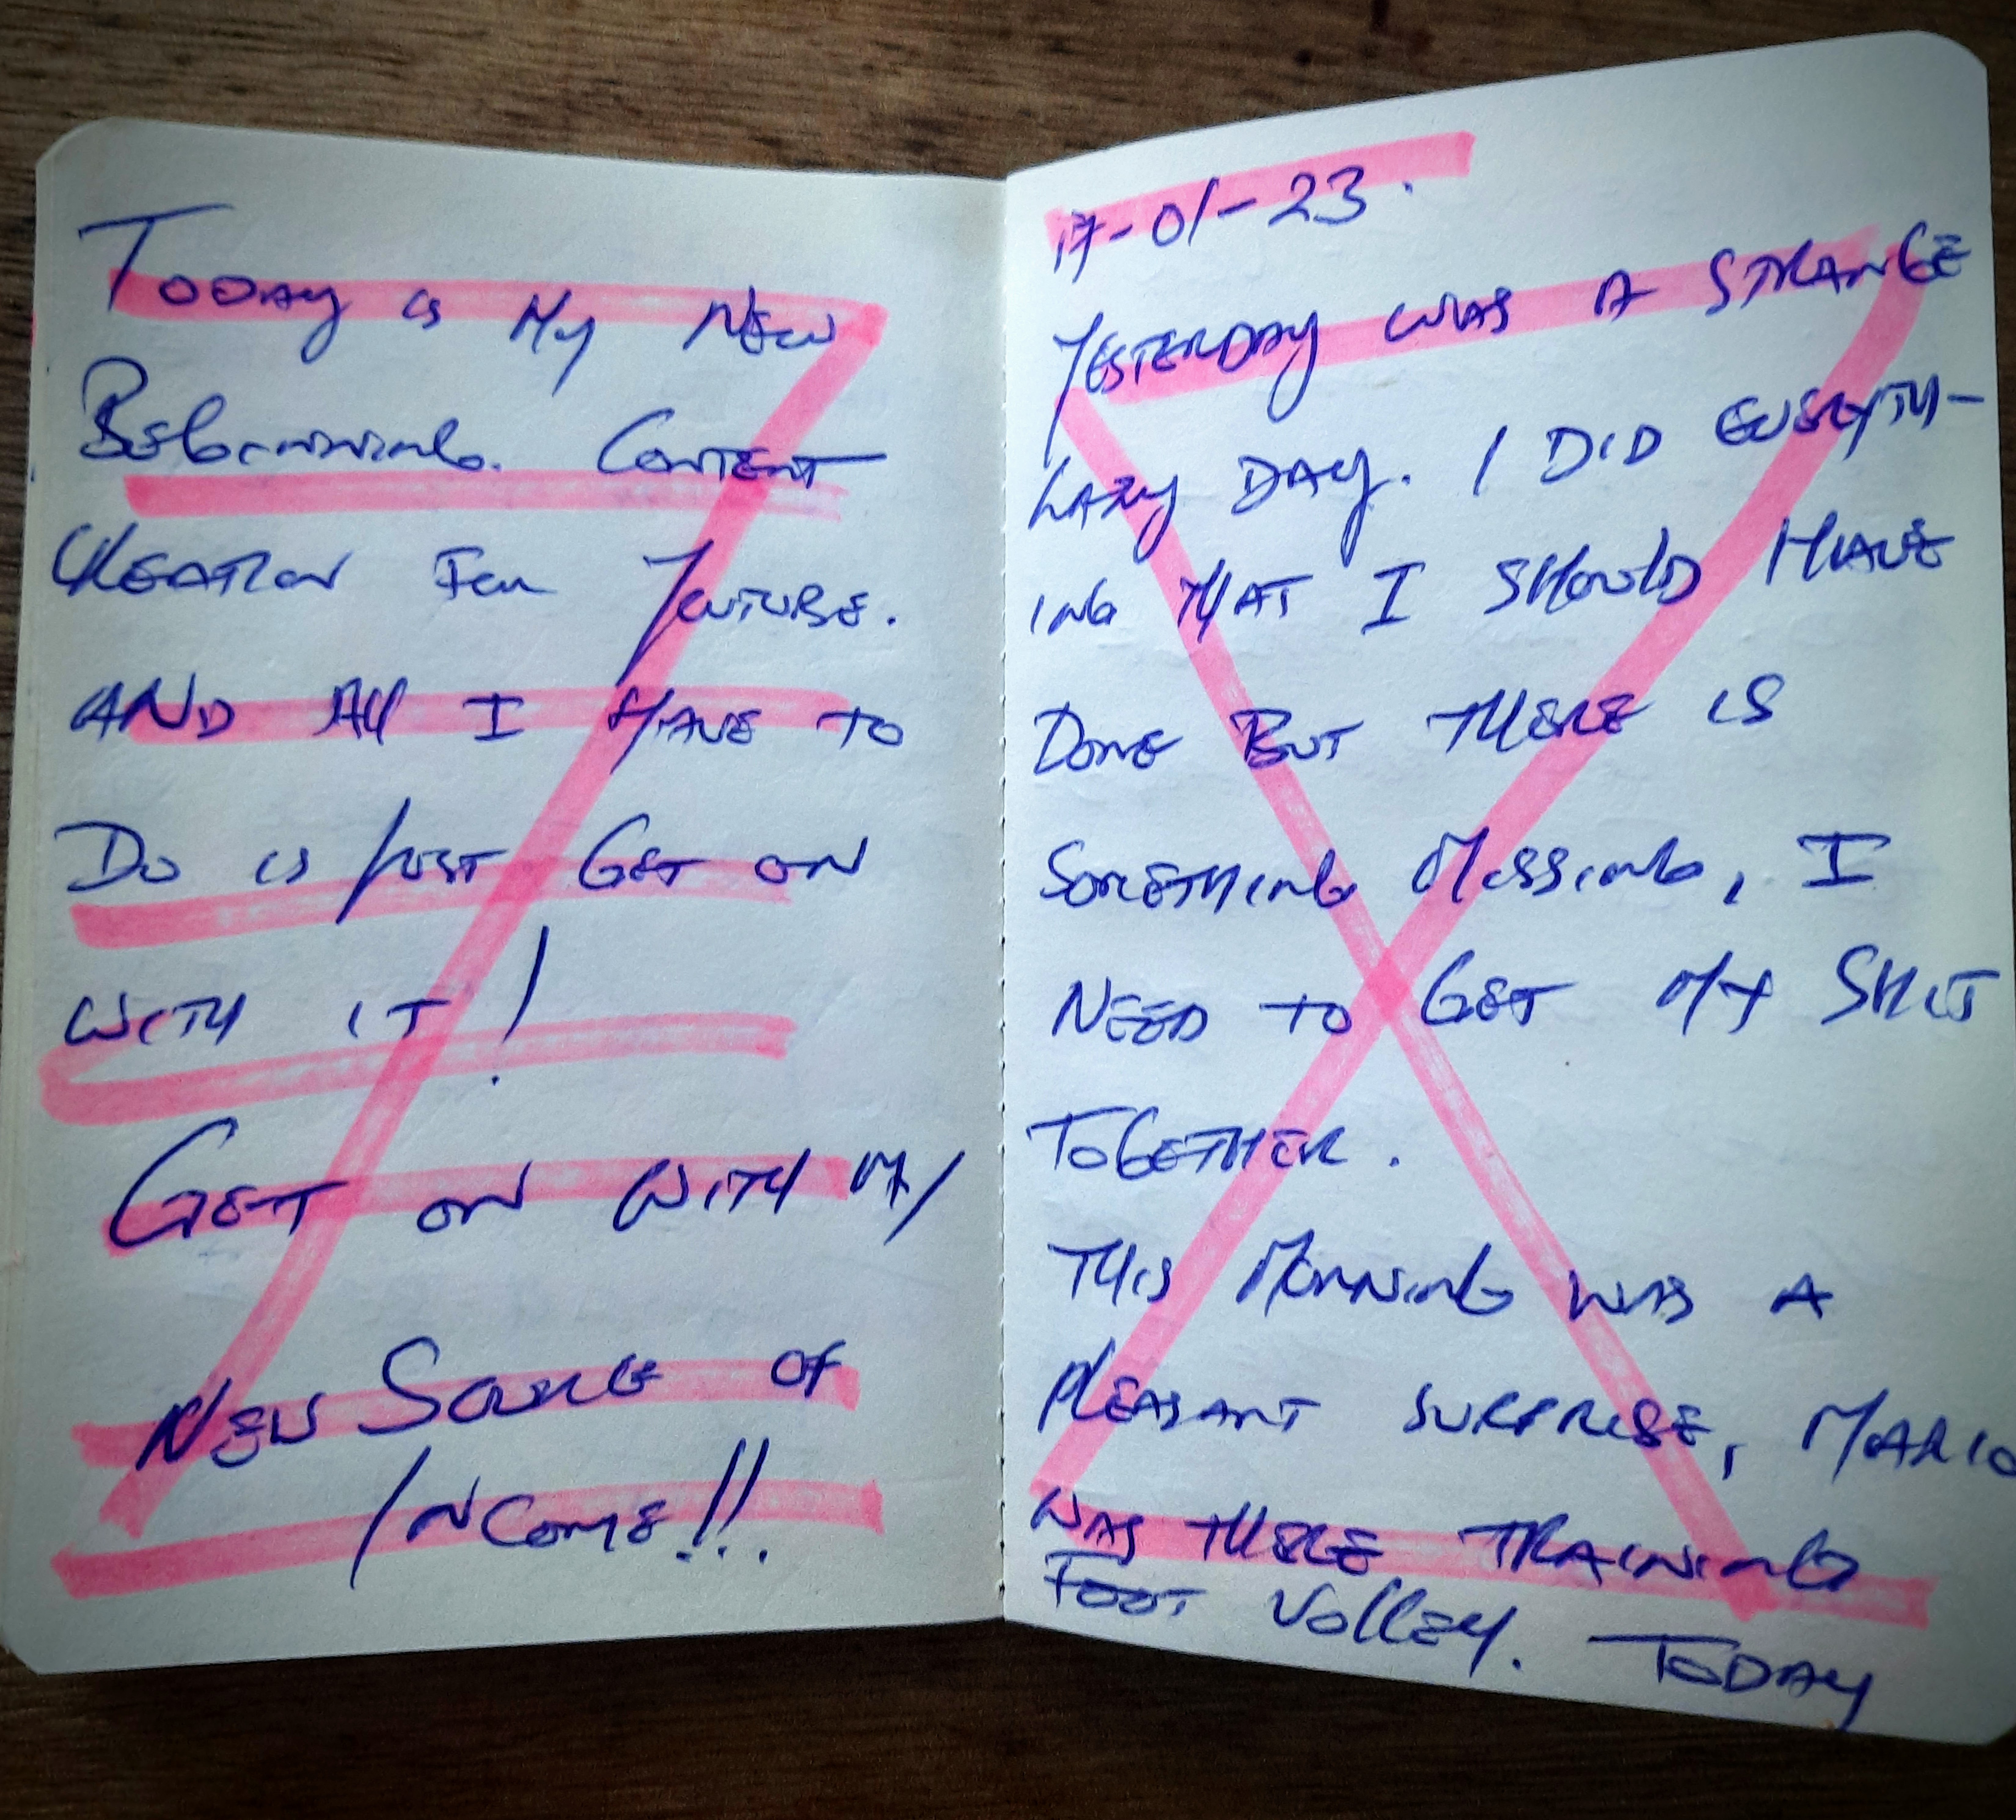 TODAY IS MY NEW
BEGINNING. CONTENT
CREATION FOR YOUTUBE.
AND All I HAVE TO
DO IS JUST GET ON
WITH IT!
GET ON WITH MY
NEW SOURCE OF
INCOME!!!
17-01-23.
YESTERDAY WAS A STRANGE
LAZY DAY. I DID EVERYTH-
ING THAT I SHOULD HAVE
DONE BUT THERE IS
SOMETHING MISSING, I
NEED TO GET MY SHIT
TOGETHER.
THIS MORNING WAS A
PLEASANT SURPRISE, MARIO
WAS THERE TRAINING
FOOT VOLLEY. TODAY